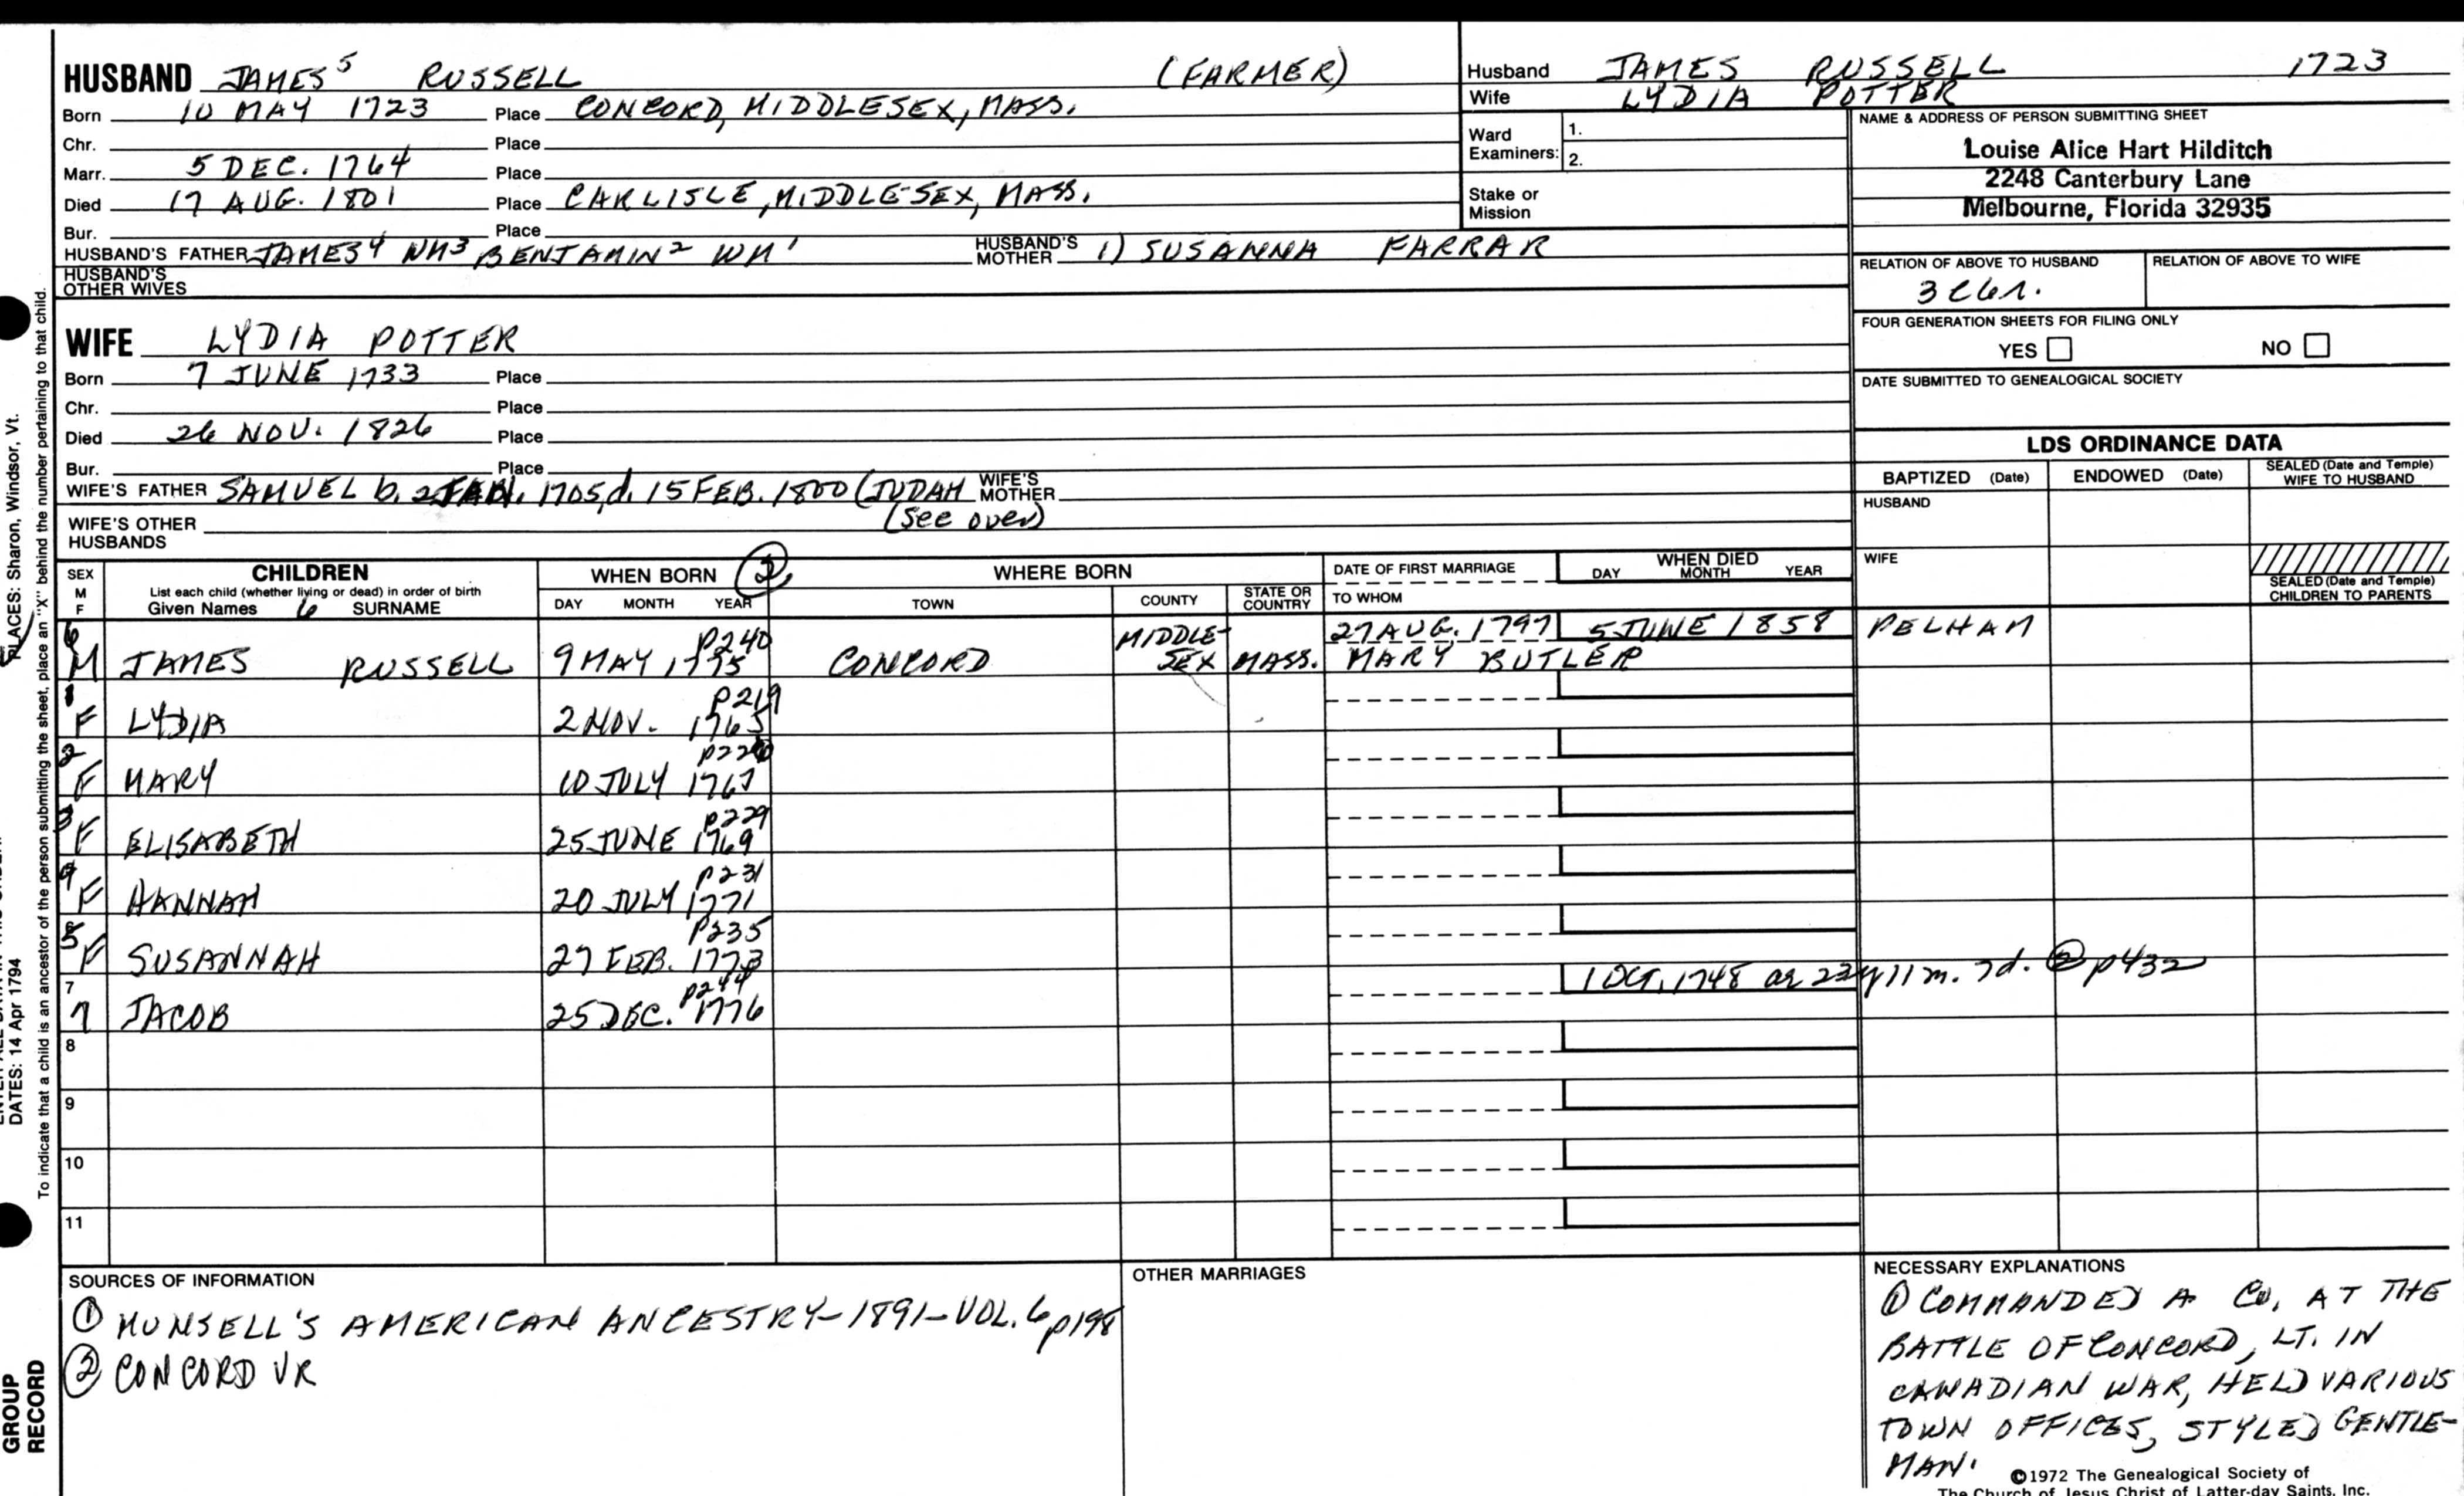 HUSBAND JAMES⁵ RUSSELL (FARMER)
Born 10 MAY 1723 Place CONCORD, MIDDLESEX, MASS.
Chr. Place
Marr. 5 DEC. 1764 Place
Died 17 AUG. 1801 Place CARLISLE, MIDDLESEX, MASS.
Bur. Place
HUSBAND'S FATHER JAMES⁴ WM³ BENJAMIN² WM¹ HUSBAND'S MOTHER 1) SUSANNA FARRAR
HUSBAND'S OTHER WIVES
Husband JAMES RUSSELL 1723
Wife LYDIA POTTER
Ward Examiners: 1. 2.
Stake or Mission
NAME & ADDRESS OF PERSON SUBMITTING SHEET
Louise Alice Hart Hilditch
2248 Canterbury Lane
Melbourne, Florida 32935
RELATION OF ABOVE TO HUSBAND RELATION OF ABOVE TO WIFE
FOUR GENERATION SHEETS FOR FILING ONLY
YES NO
DATE SUBMITTED TO GENEALOGICAL SOCIETY
WIFE LYDIA POTTER
Born 7 JUNE 1733 Place
Chr. Place
Died 26 NOV. 1826 Place
Bur. Place
WIFE'S FATHER SAMUEL b. 1705, d. 15 FEB. 1800 (JUDAH WIFE'S MOTHER
(See over)
WIFE'S OTHER HUSBANDS
LDS ORDINANCE DATA
BAPTIZED (Date) ENDOWED (Date) SEALED (Date and Temple) WIFE TO HUSBAND
HUSBAND
WIFE
SEALED (Date and Temple) CHILDREN TO PARENTS
SEX M F
CHILDREN
List each child (whether living or dead) in order of birth
Given Names SURNAME
WHEN BORN ②
DAY MONTH YEAR
WHERE BORN
TOWN COUNTY STATE OR COUNTRY
DATE OF FIRST MARRIAGE
TO WHOM
WHEN DIED
DAY MONTH YEAR
6 M JAMES RUSSELL 9 MAY 1775 P240 CONCORD MIDDLE-SEX MASS. 27 AUG. 1797 MARY BUTLER 5 JUNE 1858 PELHAM
1 F LYDIA 2 NOV. 1765 P219
2 F MARY 10 JULY 1767
3 F ELISABETH 25 JUNE 1769 P229
4 F HANNAH 20 JULY 1771 P231
5 F SUSANNAH 27 FEB. 1773 P235
7 7 JACOB 25 DEC. 1776 P244 1 OCT. 1748 ae 22y 11m. 7d. ② p432
8
9
10
11
SOURCES OF INFORMATION
① MUNSELL'S AMERICAN ANCESTRY-1891-VOL. 6 p198
② CONCORD VR
OTHER MARRIAGES
NECESSARY EXPLANATIONS
① COMMANDED A CO. AT THE
BATTLE OF CONCORD, LT. IN
CANADIAN WAR, HELD VARIOUS
TOWN OFFICES, STYLED GENTLE-
MAN.
©1972 The Genealogical Society of
The Church of Jesus Christ of Latter-day Saints, Inc.
PLACES: Sharon, Windsor, Vt.
DATES: 14 Apr 1794
To indicate that a child is an ancestor of the person submitting the sheet, place an "X" behind the number pertaining to that child.
GROUP
RECORD